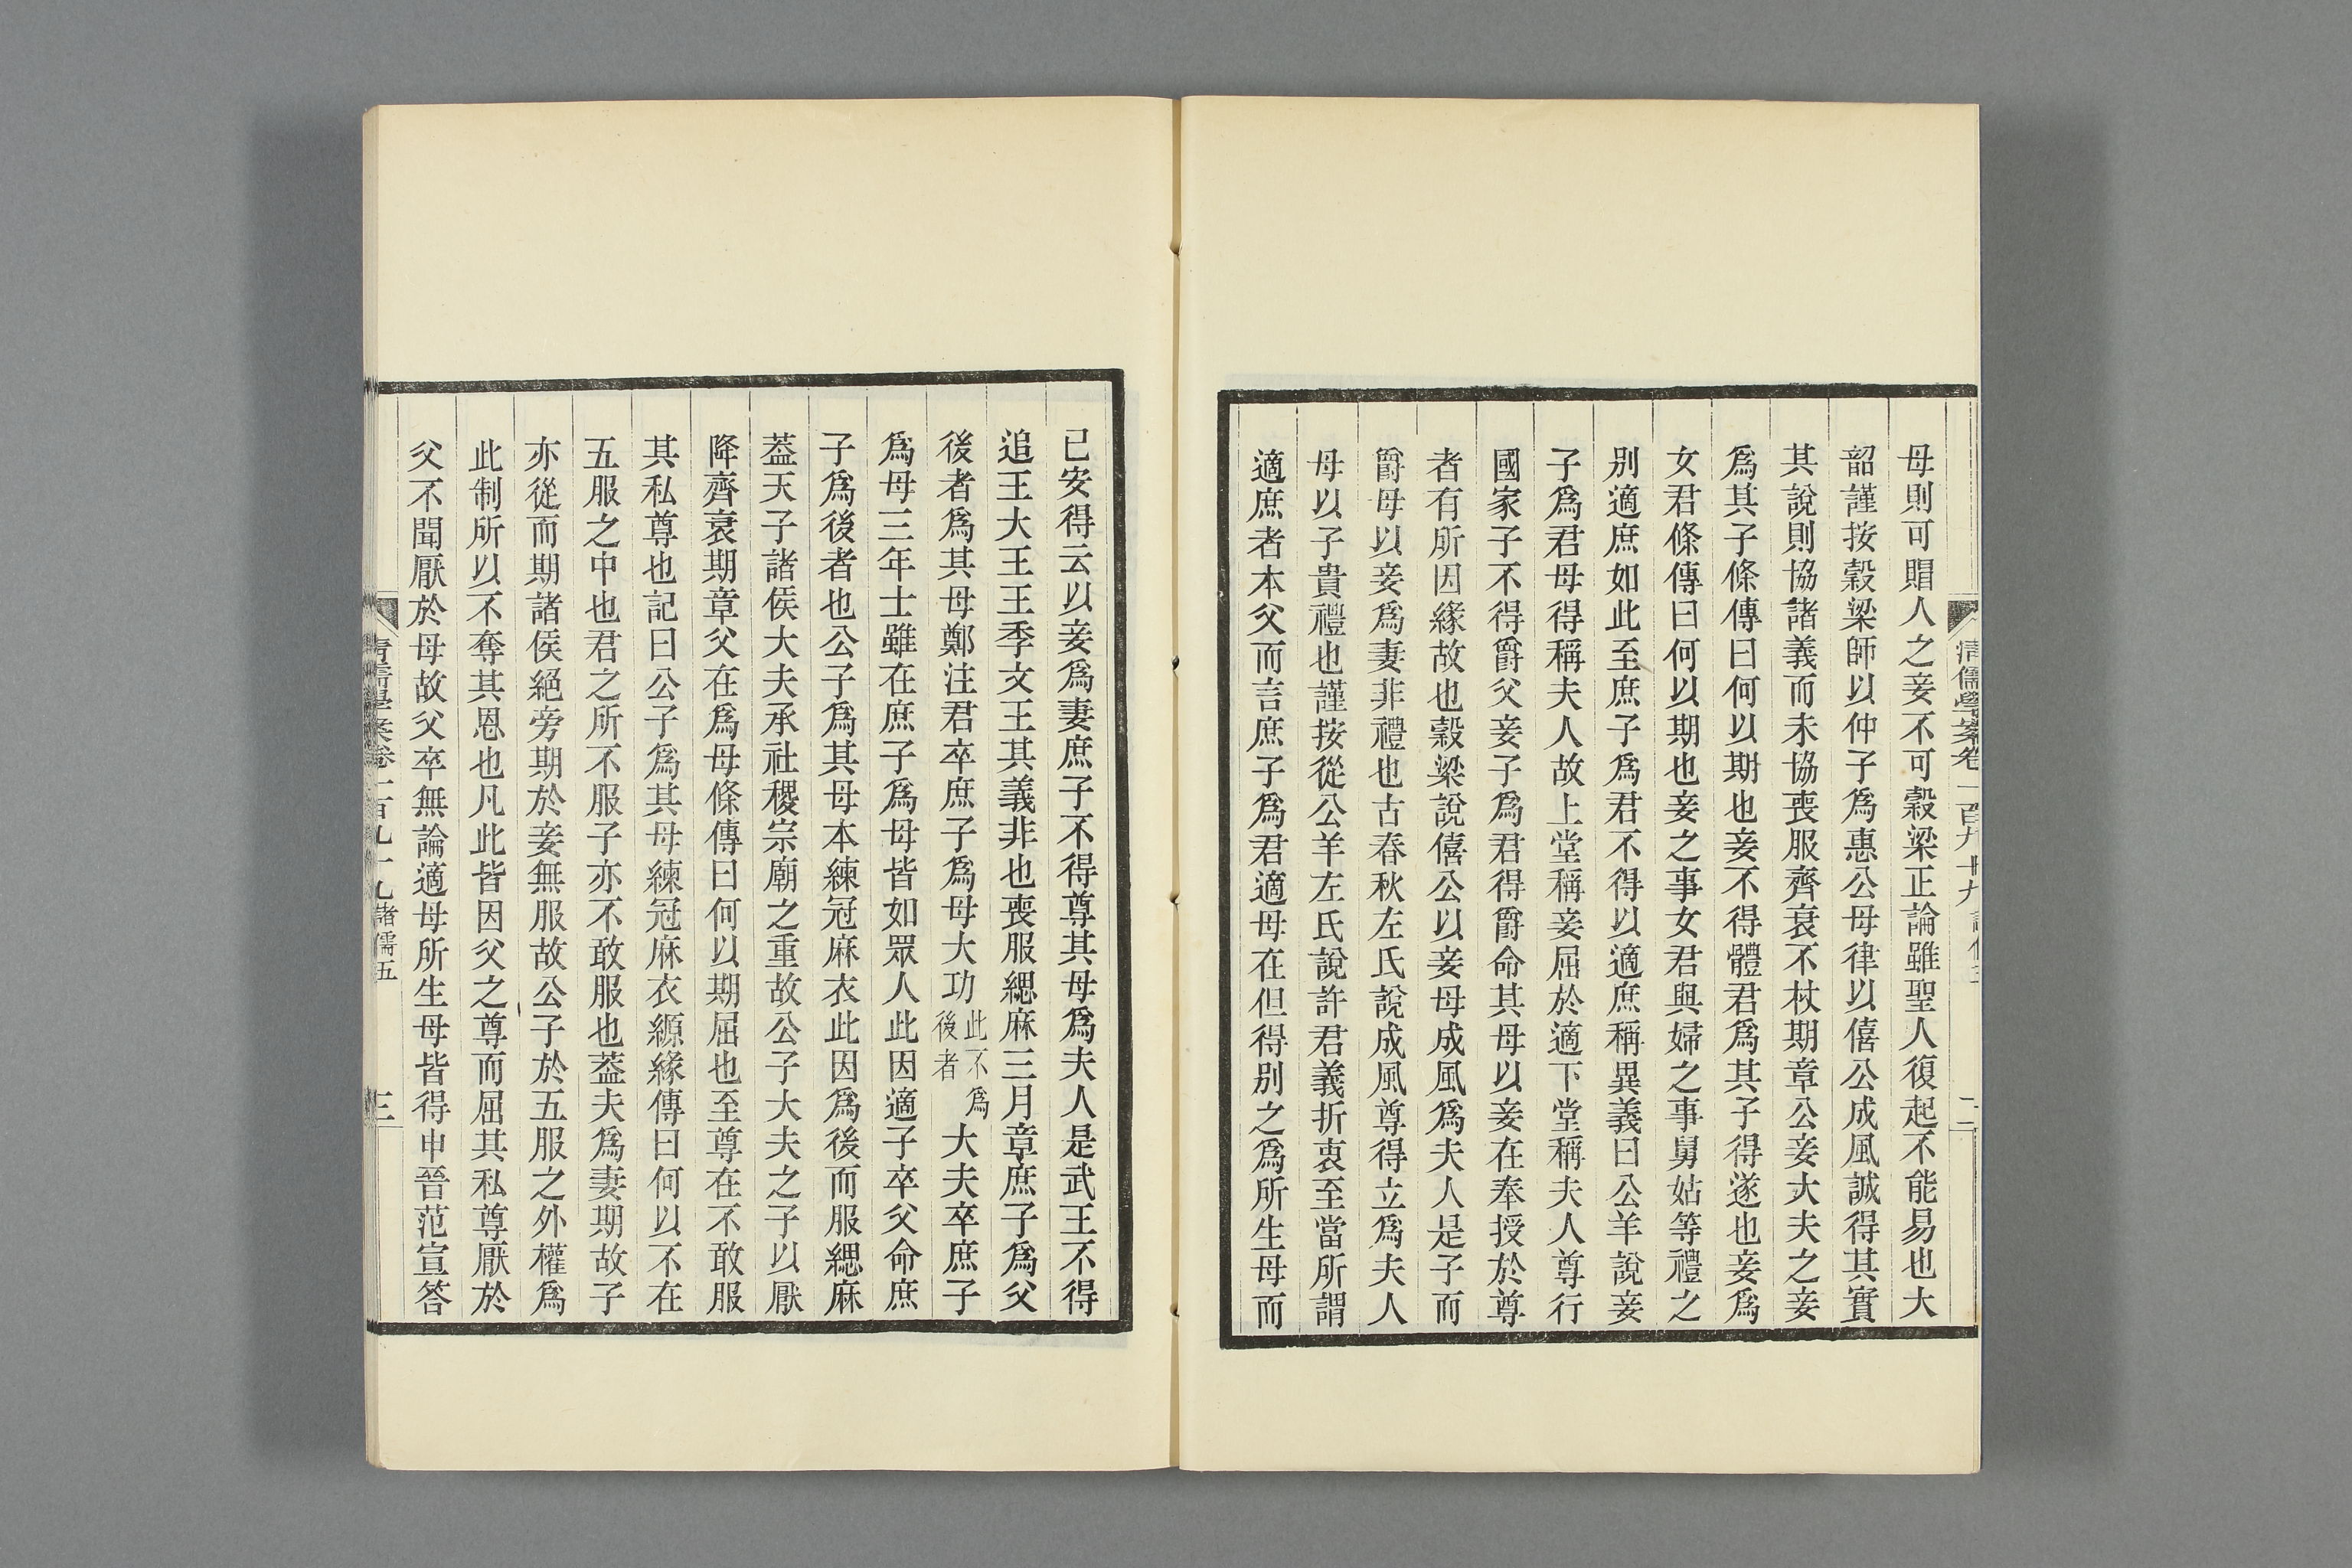 清儒學案卷一百九十九 二
母則可賵人之妾不可穀梁正論雖聖人復起不能易也大
韶謹按穀梁師以仲子爲惠公母律以僖公成風誠得其實
其說則協諸義而未協喪服齊衰不杖期章公妾大夫之妾
爲其子條傳曰何以期也妾不得體君爲其子得遂也妾爲
女君條傳曰何以期也妾之事女君與婦之事舅姑等禮之
別適庶如此至庶子爲君不得以適庶稱異義曰公羊說妾
子爲君母得稱夫人故上堂稱妾屈於適下堂稱夫人尊行
國家子不得爵父妾子爲君得爵命其母以妾在奉授於尊
者有所因緣故也穀梁說僖公以妾母成風爲夫人是子而
爵母以妾爲妻非禮也古春秋左氏說成風尊得立爲夫人
母以子貴禮也謹按從公羊左氏說許君義折衷至當所謂
適庶者本父而言庶子爲君適母在但得別之爲所生母而
已安得云以妾爲妻庶子不得尊其母爲夫人是武王不得
追王大王王季文王其義非也喪服緦麻三月章庶子爲父
後者爲其母鄭注君卒庶子爲母大功此不爲後者大夫卒庶子
爲母三年士雖在庶子爲母皆如眾人此因適子卒父命庶
子爲後者也公子爲其母本練冠麻衣此因爲後而服緦麻
葢天子諸侯大夫承社稷宗廟之重故公子大夫之子以厭
降齊衰期章父在爲母條傳曰何以期屈也至尊在不敢服
其私尊也記曰公子爲其母練冠麻衣縓緣傳曰何以不在
五服之中也君之所不服子亦不敢服也葢夫爲妻期故子
亦從而期諸侯絕旁期於妾無服故公子於五服之外權爲
此制所以不奪其恩也凡此皆因父之尊而屈其私尊厭於
父不聞厭於母故父卒無論適母所生母皆得申晉范宣答
清儒學案卷一百九十九 諸儒五 三